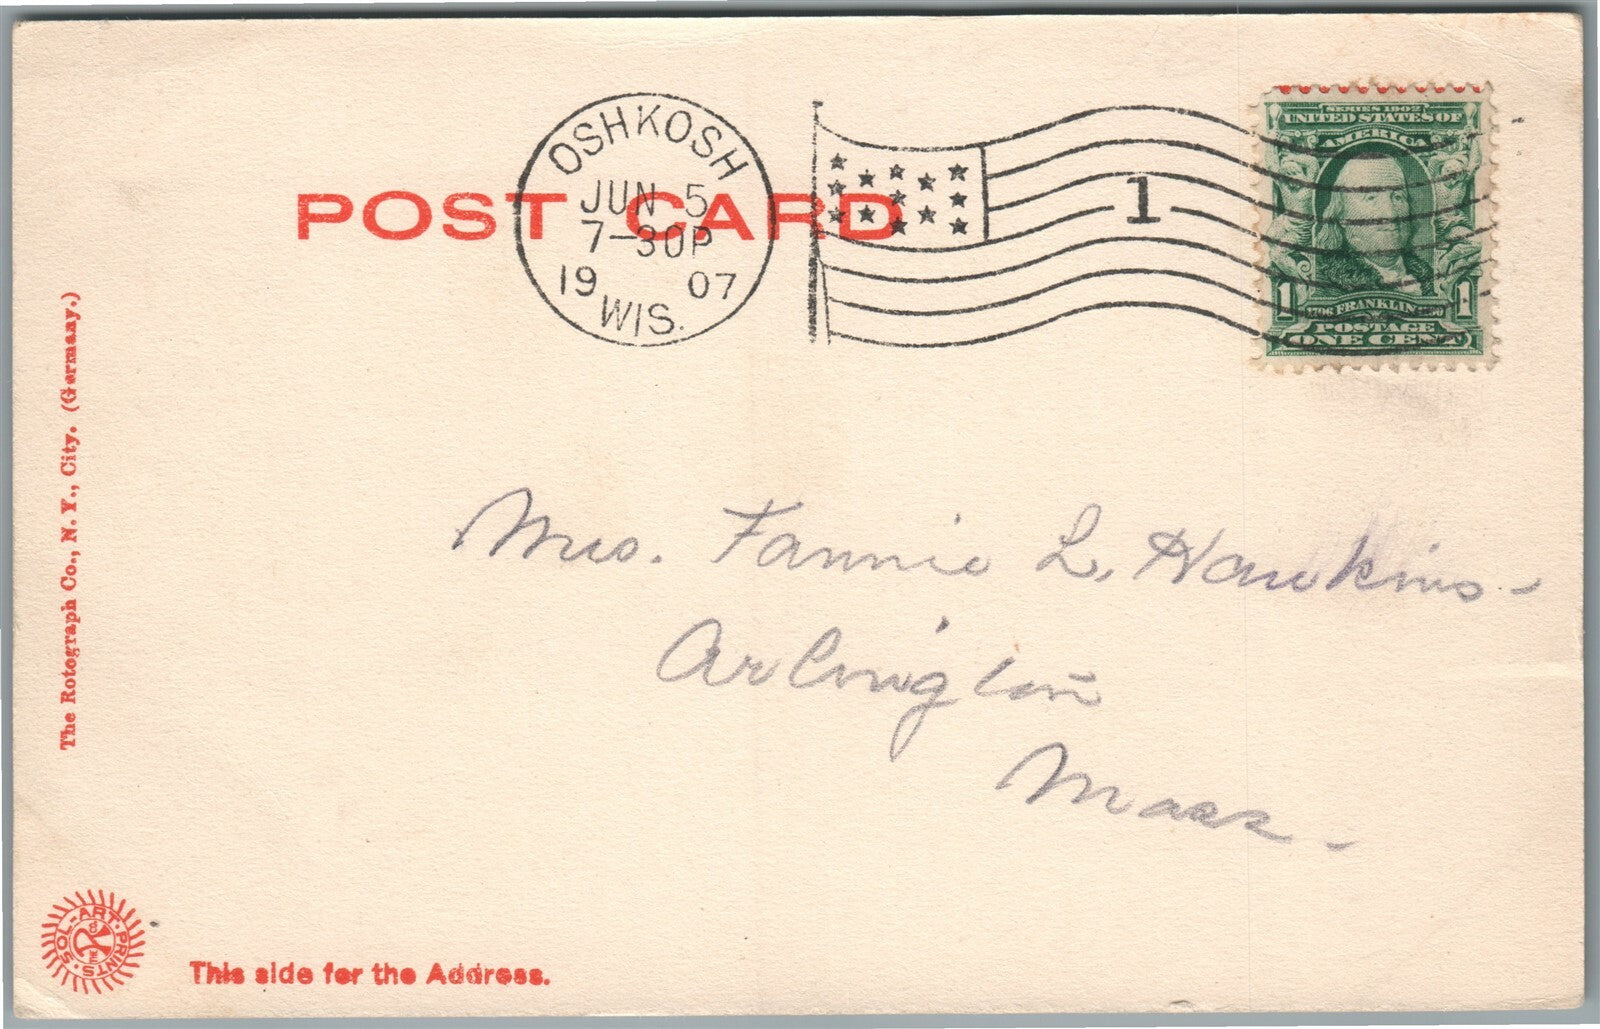 POST CARD
OSHKOSH
JUN 5
7-30P
19 07
WIS.
1
SERIES 1902
UNITED STATES OF
AMERICA
1706 FRANKLIN 1790
1 1
POSTAGE
ONE CENT
Mrs. Fannie L. Hawkins -
Arlington
Mass -
The Rotograph Co., N. Y., City. (Germany.)
SOL-ART PRINTS
This side for the Address.